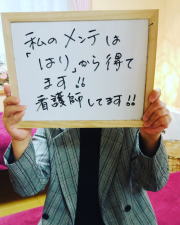 私のメンテは
「はり」から得て
ます!!
看護師してます!!